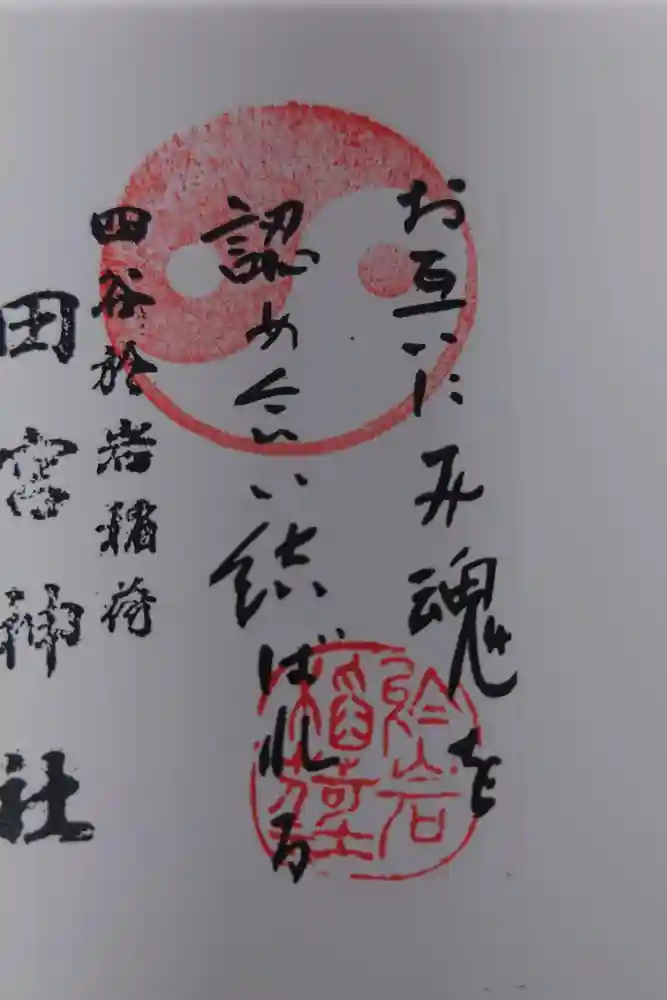 お互いにみ魂を
認め合い結ばれる
四谷於岩稲荷
田宮神社
於岩稲荷